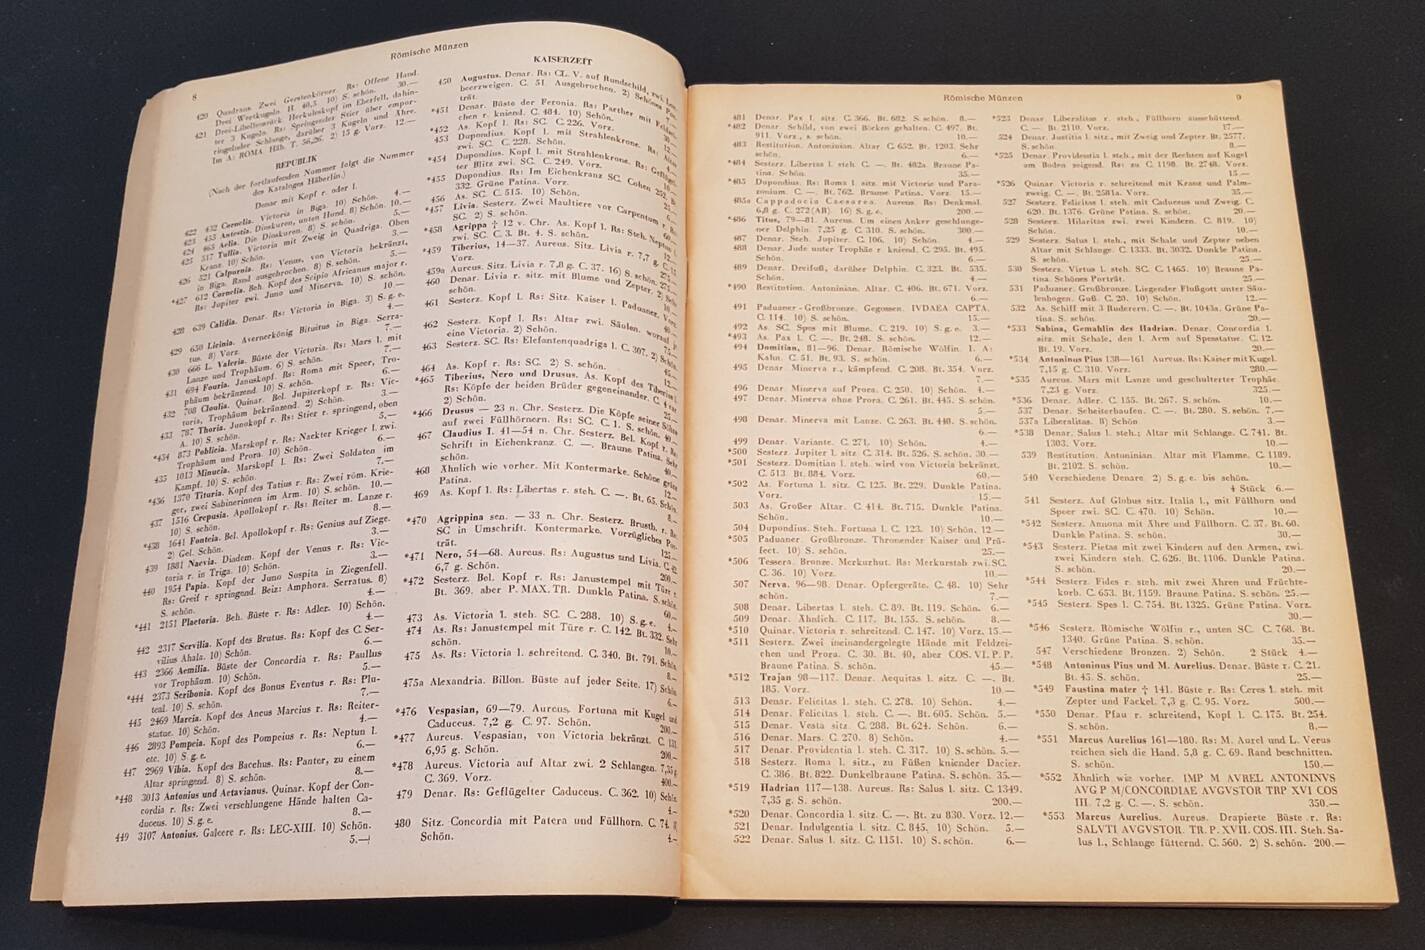 8
Römische Münzen
420 Quadrans. Zwei Gerstenkörner. Rs: Offene Hand.
Drei Wertkugeln. H. 40,5 10) S. schön. 30.—
421 Drei-Libellenstück Herkuleskopf im Eberfell, dahin-
ter 3 Kugeln. Rs: Springender Stier über empor-
ringelnder Schlange, darüber 3 Kugeln und Ähre.
Im A: ROMA Hlb. T. 56,26. 2) 15 g. Vorz. 12.—
REPUBLIK
(Nach der fortlaufenden Nummer folgt die Nummer
des Kataloges Häberlin.)
Denar mit Kopf r. oder l.
422 432 Cornelia. Victoria in Biga. 10) Schön. 4.—
423 455 Antestia. Dioskuren, unten Hund. 8) Schön. 10.—
424 465 Aelia. Die Dioskuren. 8) S. schön. 5.—
425 517 Tullia. Victoria mit Zweig in Quadriga. Oben
Kranz 10) Schön. 3.—
426 521 Calpurnia. Rs: Venus, von Victoria bekränzt,
in Biga. Rand ausgebrochen. 8) S. schön. 5.—
*427 612 Cornelia. Beh. Kopf des Scipio Africanus major r.
Rs: Jupiter zwi. Juno und Minerva. 10) S. schön.
10.—
428 639 Calidia. Denar. Rs: Victoria in Biga. 3) S. g. e.
4.—
429 650 Licinia. Avernerkönig Bituitus in Biga. Serra-
tus. 8) Vorz. 7.—
430 666 L. Valeria. Büste der Victoria. Rs: Mars l. mit
Lanze und Trophäum. 6) S. schön. 7.—
431 694 Fouria. Januskopf. Rs: Roma mit Speer, Tro-
phäum bekränzend. 10) S. schön. 6.—
432 708 Cloulia. Quinar. Bel. Jupiterkopf r. Rs: Vic-
toria, Trophäum bekränzend. 2) Schön. 3.—
433 787 Thoria. Junokopf r. Rs: Stier r. springend, oben
A. 10) S. schön. 5.—
*434 873 Poblicia. Marskopf r. Rs: Nackter Krieger l. zwi.
Trophäum und Prora. 10) S. schön. 6.—
435 1013 Minucia. Marskopf l. Rs: Zwei Soldaten im
Kampf. 10) S. schön. 7.—
*436 1370 Tituria. Kopf des Tatius r. Rs: Zwei röm. Krie-
ger, zwei Sabinerinnen im Arm. 10) S. schön. 10.—
437 1516 Crepusia. Apollokopf r. Rs: Reiter m. Lanze r.
10) S. schön. 8.—
*438 1641 Fonteia. Bel. Apollokopf r. Rs: Genius auf Ziege.
2) Gel. Schön. 3.—
439 1881 Naevia. Diadem. Kopf der Venus r. Rs: Vic-
toria r. in Triga. 10) Schön. 3.—
440 1954 Papia. Kopf der Juno Sospita in Ziegenfell.
Rs: Greif r. springend. Beiz: Amphora. Serratus. 8)
S. schön. 4.—
*441 2151 Plaetoria. Beh. Büste r. Rs: Adler. 10) Schön.
4.—
442 2317 Servilia. Kopf des Brutus. Rs: Kopf des C. Ser-
vilius Ahala. 10) Schön. 6.—
443 2366 Aemilia. Büste der Concordia r. Rs: Paullus
vor Trophäum. 10) Schön. 5.—
*444 2373 Scribonia. Kopf des Bonus Eventus r. Rs: Plu-
teal. 10) S. schön. 7.—
445 2469 Marcia. Kopf des Ancus Marcius r. Rs: Reiter-
statue. 10) Schön. 4.—
446 2893 Pompeia. Kopf des Pompeius r. Rs: Neptun l.
etc. 10) S. g. e. 6.—
447 2969 Vibia. Kopf des Bacchus. Rs: Panter, zu einem
Altar springend. 8) S. schön. 8.—
*448 3013 Antonius und Octavianus. Quinar. Kopf der Con-
cordia r. Rs: Zwei verschlungene Hände halten Ca-
duceus. 10) S. g. e. 8.—
449 3107 Antonius. Galeere r. Rs: LEC-XIII. 10) Schön.
5.—
KAISERZEIT
450 Augustus. Denar. Rs: CL. V. auf Rundschild, zwi. Lor-
beerzweigen. C. 51. Ausgebrochen. 2) Schönes Por-
trät.
*451 Denar. Büste der Feronia. Rs: Parther mit Feldzei-
chen r. kniend. C. 484. 10) Schön.
*452 As. Kopf l. Rs: SC. C. 226. Vorz.
453 Dupondius. Kopf l. mit Strahlenkrone. Rs: Altar
zwi. SC. C. 228. Schön.
*454 Dupondius. Kopf l. mit Strahlenkrone. Rs: Geflügel-
ter Blitz zwi. SC. C. 249. Vorz.
*455 Dupondius. Rs: Im Eichenkranz SC. Cohen 252. Bt.
332. Grüne Patina. Vorz.
456 As. SC. C. 515. 10) Schön.
*457 Livia. Sesterz. Zwei Maultiere vor Carpentum r. Rs:
SC. 2) S. schön.
*458 Agrippa † 12 v. Chr. As. Kopf l. Rs: Steh. Neptun l.
zwi. SC. C. 3. Bt. 4. S. schön.
*459 Tiberius, 14—37. Aureus. Sitz. Livia r. 7,7 g. C. 15.
459a Aureus. Sitz. Livia r. 7,8 g. C. 37. 16) S. schön. 275.—
460 Denar. Livia r. sitz. mit Blume und Zepter. 2) Schön.
461 Sesterz. Kopf l. Rs: Sitz. Kaiser l. Paduaner. Vorz.
462 Sesterz. Kopf l. Rs: Altar zwi. Säulen, worauf je
eine Victoria. 2) Schön.
463 Sesterz. SC. Rs: Elefantenquadriga l. C. 307. 2) Schön.
464 As. Kopf r. Rs: SC. 2) S. schön.
*465 Tiberius, Nero und Drusus. As. Kopf des Tiberius l.
Rs: Köpfe der beiden Brüder gegeneinander. C. 4
2) Schön.
*466 Drusus — 23 n. Chr. Sesterz. Die Köpfe seiner Söhne
auf zwei Füllhörnern. Rs: SC. C. 1. S. schön. 40.—
467 Claudius I. 41—54 n. Chr. Sesterz. Bel. Kopf r. Rs:
Schrift in Eichenkranz. C. —. Braune Patina. Sehr
schön.
468 Ähnlich wie vorher. Mit Kontermarke. Schöne grüne
Patina.
469 As. Kopf l. Rs: Libertas r. steh. C. —. Bt. 65. Schön.
8.—
*470 Agrippina sen. — 33 n. Chr. Sesterz. Brustb. r. Rs:
SC in Umschrift. Kontermarke. Vorzügliches Por-
trät. 125.—
*471 Nero, 54—68. Aureus. Rs: Augustus und Livia. C. 42.
6,7 g. Schön. 200.—
*472 Sesterz. Bel. Kopf r. Rs: Janustempel mit Türe r.
Bt. 369. aber P. MAX. TR. Dunkle Patina. S. schön.
60.—
473 As. Victoria l. steh. SC. C. 288. 10) S. g. e. 4.—
474 As. Rs: Janustempel mit Türe r. C. 142. Bt. 332. Sehr
schön. 10.—
475 As. Rs: Victoria l. schreitend. C. 340. Bt. 791. Schön.
475a Alexandria. Billon. Büste auf jeder Seite. 17) Schön.
6.—
*476 Vespasian, 69—79. Aureus. Fortuna mit Kugel und
Caduceus. 7,2 g. C. 97. Schön. 200.—
*477 Aureus. Vespasian, von Victoria bekränzt. C. 131.
6,95 g. Schön. 200.—
*478 Aureus. Victoria auf Altar zwi. 2 Schlangen. 7,35 g.
C. 369. Vorz. 400.—
479 Denar. Rs: Geflügelter Caduceus. C. 362. 10) Schön.
4.—
480 Sitz. Concordia mit Patera und Füllhorn. C. 74. 8)
Schön. 4.—
Römische Münzen
9
481 Denar. Pax l. sitz. C. 366. Bt. 682. S. schön. 8.—
*482 Denar. Schild, von zwei Böcken gehalten. C. 497. Bt.
911. Vorz., s. schön. 10.—
483 Restitution. Antoninian. Altar C. 652. Bt. 1203. Sehr
schön. 6.—
*484 Sesterz. Libertas l. steh. C. —. Bt. 482a. Braune Pa-
tina. Schön. 35.—
*485 Dupondius. Rs: Roma l. sitz. mit Victorie und Para-
zonium. C. —. Bt. 762. Braune Patina. Vorz. 15.—
485a Cappadocia Caesarea. Aureus. Rs: Denkmal.
6,8 g. C. 272 (AR). 16) S. g. e. 200.—
*486 Titus, 79—81. Aureus. Um einen Anker geschlunge-
ner Delphin. 7,25 g. C. 310. S. schön. 300.—
487 Denar. Steh. Jupiter. C. 106. 10) Schön. 4.—
488 Denar. Jude unter Trophäe r. kniend. C. 295. Bt. 495.
Schön. 6.—
489 Denar. Dreifuß, darüber Delphin. C. 323. Bt. 535.
Schön. 4.—
*490 Restitution. Antoninian. Altar. C. 406. Bt. 671. Vorz.
6.—
491 Paduaner-Großbronze. Gegossen. IVDAEA CAPTA.
C. 114. 10) S. schön. 15.—
492 As. SC. Spes mit Blume. C. 219. 10) S. g. e. 3.—
*493 As. Pax l. C. —. Bt. 248. S. schön. 12.—
494 Domitian, 81—96. Denar. Römische Wölfin l. A:
Kahn. C. 51. Bt. 93. S. schön. 6.—
495 Denar. Minerva r., kämpfend. C. 208. Bt. 354. Vorz.
7.—
496 Denar. Minerva auf Prora. C. 250. 10) Schön. 4.—
497 Denar. Minerva ohne Prora. C. 261. Bt. 445. S. schön.
5.—
498 Denar. Minerva mit Lanze. C. 263. Bt. 440. S. schön.
6.—
499 Denar. Variante. C. 271. 10) Schön. 4.—
*500 Sesterz. Jupiter l. sitz. C. 314. Bt. 526. S. schön. 30.—
*501 Sesterz. Domitian l. steh. wird von Victoria bekränzt.
C. 513. Bt. 884. Vorz. 60.—
*502 As. Fortuna l. sitz. C. 125. Bt. 229. Dunkle Patina.
Vorz. 15.—
503 As. Großer Altar. C. 414. Bt. 715. Dunkle Patina.
Schön. 10.—
504 Dupondius. Steh. Fortuna l. C. 123. 10) Schön. 12.—
*505 Paduaner. Großbronze. Thronender Kaiser und Prä-
fect. 10) S. schön. 25.—
*506 Tessera. Bronze. Merkurhut. Rs: Merkurstab zwi. SC.
C. 36. 10) Vorz. 10.—
507 Nerva. 96—98. Denar. Opfergeräte. C. 48. 10) Sehr
schön. 7.—
508 Denar. Libertas l. steh. C. 89. Bt. 119. Schön. 6.—
509 Denar. Ähnlich. C. 117. Bt. 155. S. schön. 8.—
*510 Quinar. Victoria r. schreitend. C. 147. 10) Vorz. 15.—
*511 Sesterz. Zwei ineinandergelegte Hände mit Feldzei-
chen und Prora. C. 30. Bt. 40, aber COS. VI. P. P.
Braune Patina. S. schön. 45.—
*512 Trajan 98—117. Denar. Aequitas l. sitz. C. —. Bt.
185. Vorz. 10.—
513 Denar. Felicitas l. steh. C. 278. 10) Schön. 4.—
514 Denar. Felicitas l. steh. C. —. Bt. 605. Schön. 5.—
515 Denar. Vesta sitz. C. 288. Bt. 624. Schön. 6.—
516 Denar. Mars. C. 270. 8) Schön. 4.—
517 Denar. Providentia l. steh. C. 317. 10) S. schön. 5.—
518 Sesterz. Roma l. sitz., zu Füßen kniender Dacier.
C. 386. Bt. 822. Dunkelbraune Patina. S. schön. 35.—
*519 Hadrian 117—138. Aureus. Rs: Salus l. sitz. C. 1349.
7,35 g. S. schön. 200.—
*520 Denar. Concordia l. sitz. C. —. Bt. zu 830. Vorz. 12.—
521 Denar. Indulgentia l. sitz. C. 845. 10) Schön. 5.—
522 Denar. Salus l. sitz. C. 1151. 10) S. schön. 6.—
*523 Denar Liberalitas r. steh., Füllhorn ausschüttend.
C. — Bt. 2110. Vorz. 17.—
524 Denar. Justitia l. sitz., mit Zweig und Zepter. Bt. 2577.
S. schön. 8.—
*525 Denar. Providentia l. steh., mit der Rechten auf Kugel
am Boden zeigend. Rs: zu C. 1198. Bt. 2748. Vorz.
15.—
*526 Quinar. Victoria r. schreitend mit Kranz und Palm-
zweig. C. —. Bt. 2581a. Vorz. 35.—
527 Sesterz. Felicitas l. steh. mit Caduceus und Zweig. C.
620. Bt. 1376. Grüne Patina. S. schön. 20.—
528 Sesterz. Hilaritas zwi. zwei Kindern. C. 819. 10)
Schön. 20.—
529 Sesterz. Salus l. steh., mit Schale und Zepter neben
Altar mit Schlange. C. 1333. Bt. 3032. Dunkle Patina.
S. schön. 25.—
530 Sesterz. Virtus l. steh. SC. C. 1465. 10) Braune Pa-
tina. Schönes Porträt. 25.—
531 Paduaner. Großbronze. Liegender Flußgott unter Säu-
lenbogen. Guß. C. 20. 10) Schön. 12.—
532 As. Schiff mit 3 Ruderern. C. —. Bt. 1043a. Grüne Pa-
tina. S. schön. 20.—
*533 Sabina, Gemahlin des Hadrian. Denar. Concordia l.
sitz. mit Schale, den l. Arm auf Spesstatue. C. 12.
Bt. 19. Vorz. 20.—
*534 Antoninus Pius 138—161 Aureus. Rs: Kaiser mit Kugel.
7,15 g. C. 310. Vorz. 280.—
*535 Aureus. Mars mit Lanze und geschulterter Trophäe.
7,23 g. Vorz. 325.—
*536 Denar. Adler. C. 155. Bt. 267. S. schön. 10.—
537 Denar. Scheiterhaufen. C. —. Bt. 280. S. schön. 7.—
537a Liberalitas. 8) Schön 3.—
*538 Denar. Salus l. steh.; Altar mit Schlange. C. 741. Bt.
1303. Vorz. 10.—
539 Restitution. Antoninian. Altar mit Flamme. C. 1189.
Bt. 2102. S. schön. 10.—
540 Verschiedene Denare. 2) S. g. e. bis schön.
4 Stück 6.—
541 Sesterz. Auf Globus sitz. Italia l., mit Füllhorn und
Speer zwi. SC. C. 470. 10) Schön. 10.—
*542 Sesterz. Annona mit Ähre und Füllhorn. C. 37. Bt. 60.
Dunkle Patina. S. schön. 30.—
*543 Sesterz. Pietas mit zwei Kindern auf den Armen, zwi.
zwei Kindern steh. C. 626. Bt. 1106. Dunkle Patina.
S. schön. 20.—
*544 Sesterz. Fides r. steh. mit zwei Ähren und Früchte-
korb. C. 653. Bt. 1159. Braune Patina. S. schön. 25.—
*545 Sesterz. Spes l. C. 754. Bt. 1325. Grüne Patina. Vorz.
30.—
*546 Sesterz. Römische Wölfin r., unten SC. C. 768. Bt.
1340. Grüne Patina. S. schön. 35.—
547 Verschiedene Bronzen. 2) Schön. 2 Stück 4.—
*548 Antoninus Pius und M. Aurelius. Denar. Büste r. C. 21.
Bt. 45. S. schön. 25.—
*549 Faustina mater † 141. Büste r. Rs: Ceres l. steh. mit
Zepter und Fackel. 7,3 g. C. 95. Vorz. 500.—
*550 Denar. Pfau r. schreitend, Kopf l. C. 175. Bt. 254.
S. schön. 8.—
*551 Marcus Aurelius 161—180. Rs: M. Aurel und L. Verus
reichen sich die Hand. 5,8 g. C. 69. Rand beschnitten.
S. schön. 150.—
*552 Ähnlich wie vorher. IMP M AVREL ANTONINVS
AVG P M/CONCORDIAE AVGVSTOR TRP XVI COS
III. 7,2 g. C. —. S. schön. 350.—
*553 Marcus Aurelius. Aureus. Drapierte Büste r. Rs:
SALVTI AVGVSTOR. TR. P. XVII. COS. III. Steh. Sa-
lus l., Schlange fütternd. C. 560. 2) S. schön. 200.—